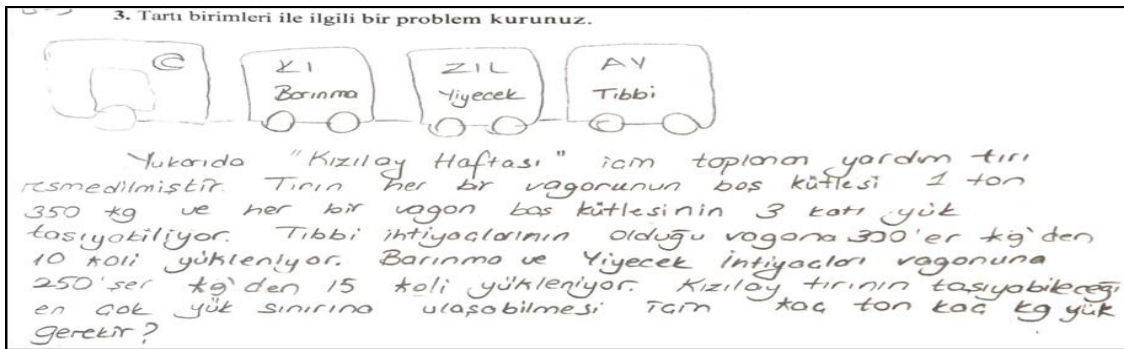 3. Tartı birimleri ile ilgili bir problem kurunuz.
C KI ZIL AY
Barınma Yiyecek Tıbbi
Yukarıda "Kızılay Haftası" için toplanan yardım tırı
resmedilmiştir. Tırın her bir vagonunun boş kütlesi 1 ton
350 kg ve her bir vagon boş kütlesinin 3 katı yük
taşıyabiliyor. Tıbbi ihtiyaçlarının olduğu vagona 300'er kg'den
10 koli yükleniyor. Barınma ve Yiyecek İhtiyaçları vagonuna
250'şer kg'den 15 koli yükleniyor. Kızılay tırının taşıyabileceği
en çok yük sınırına ulaşabilmesi için kaç ton kaç kg yük
gerekir?